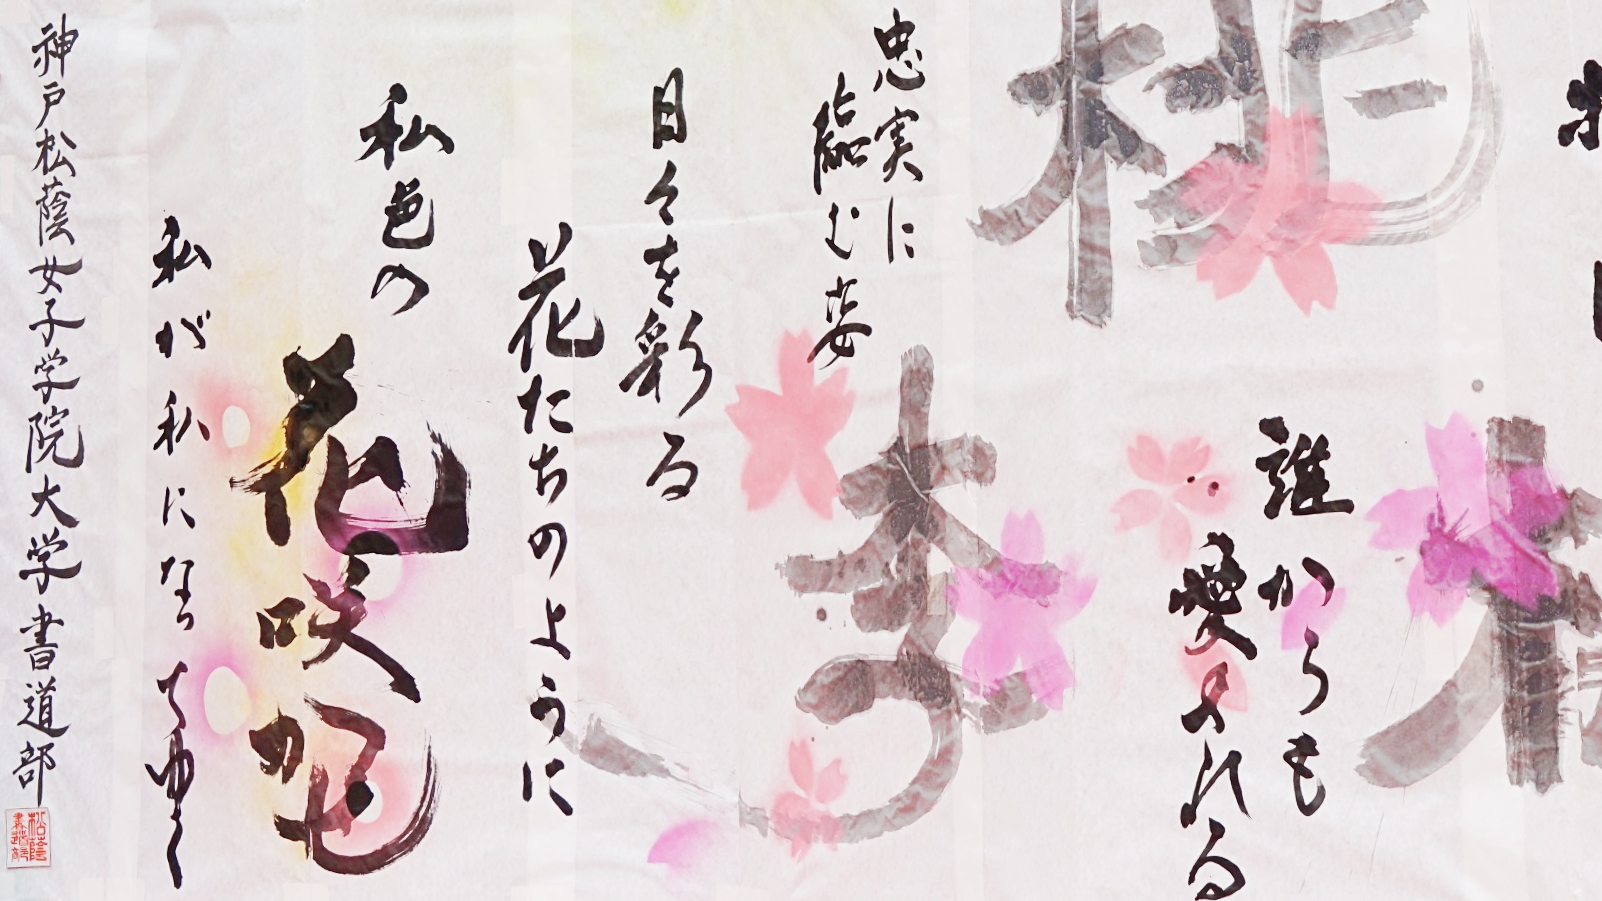 桃
誰からも
愛される
李
忠実に
臨む姿
日々を彩る
花たちのように
私色の
花咲かせ
私が私になってゆく
神戸松蔭女子学院大学書道部